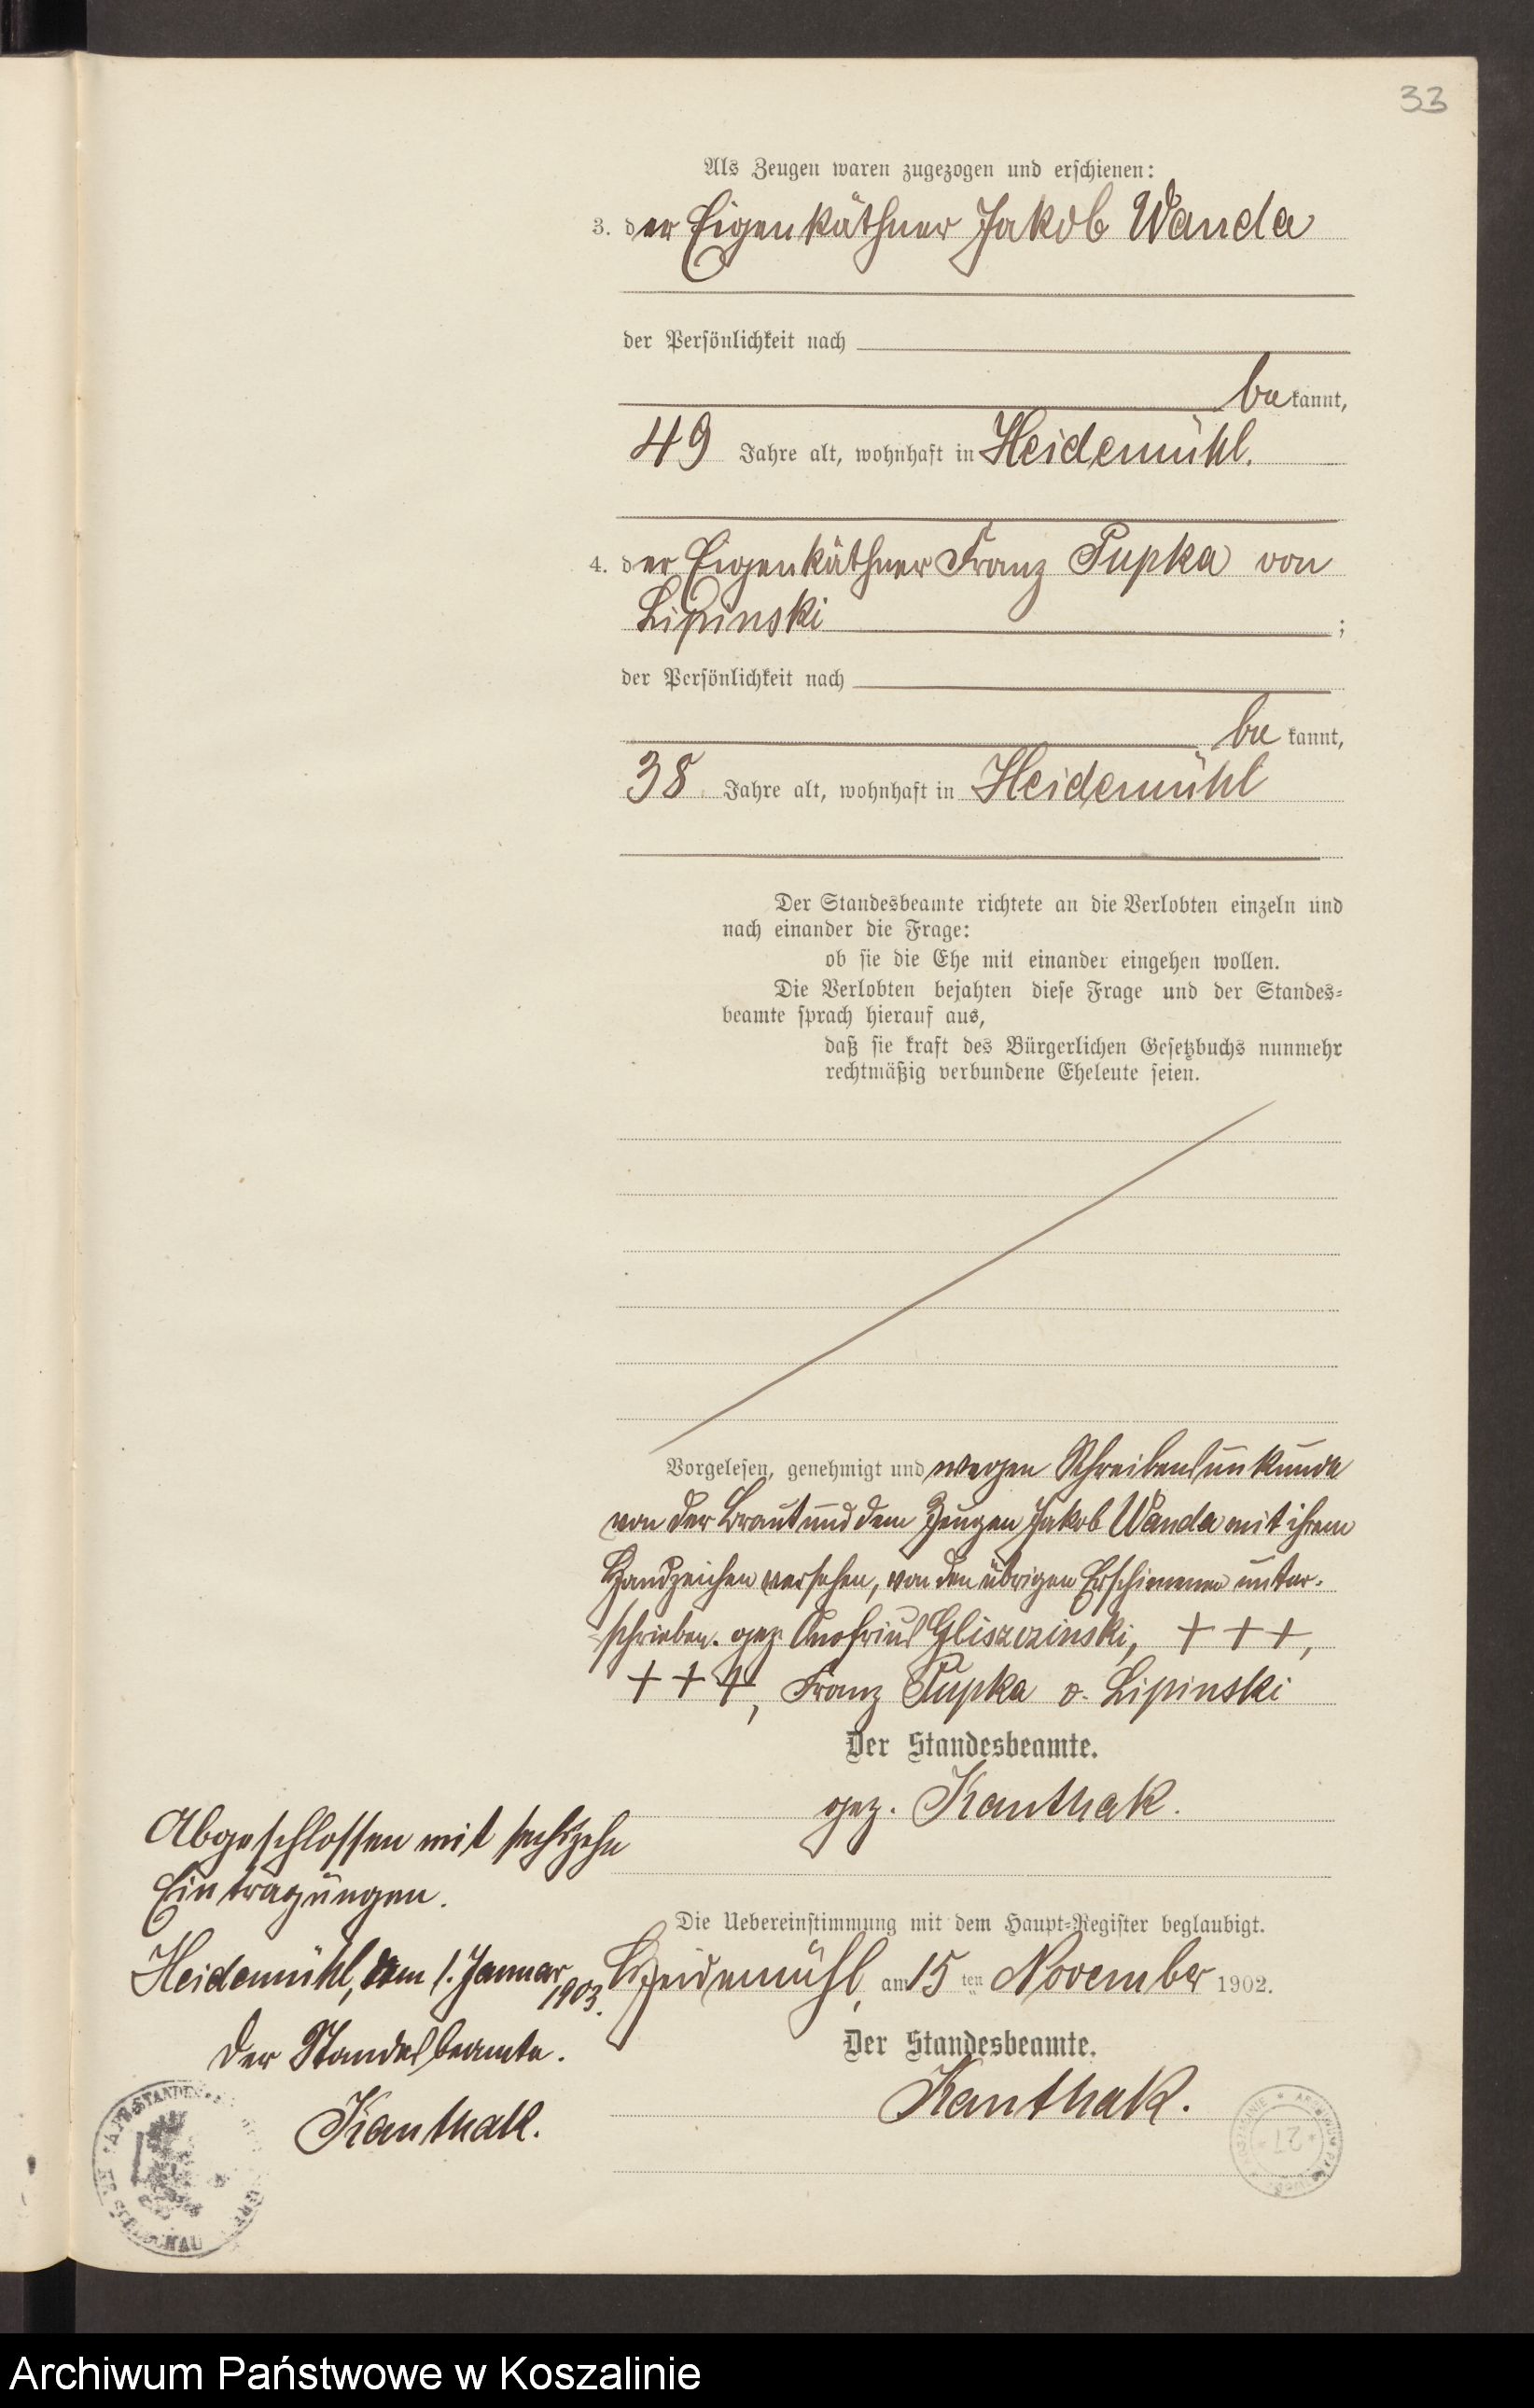 33
Als Zeugen waren zugezogen und erschienen:
3. der Eigenkäthner Jakob Wanda
der Persönlichkeit nach
bekannt,
49 Jahre alt, wohnhaft in Heidemühl.
4. der Eigenkäthner Franz Pupka von
Lipinski ;
der Persönlichkeit nach
be kannt,
38 Jahre alt, wohnhaft in Heidemühl
Der Standesbeamte richtete an die Verlobten einzeln und
nach einander die Frage:
ob sie die Ehe mit einander eingehen wollen.
Die Verlobten bejahten diese Frage und der Standes=
beamte sprach hierauf aus,
daß sie kraft des Bürgerlichen Gesetzbuchs nunmehr
rechtmäßig verbundene Eheleute seien.
Vorgelesen, genehmigt und wegen Schreibensunkunde
von der Braut und dem Zeugen Jakob Wanda mit ihrem
Handzeichen versehen, von den übrigen Erschienenen unter-
schrieben. gez. Onofrius Gliszczinski, + + +,
+ + +, Franz Pupka v. Lipinski
Der Standesbeamte.
gez. Kanthak.
Abgeschlossen mit sechszehn
Eintragungen.
Heidemühl, den 1. Januar
1903.
Der Standesbeamte.
Kanthak.
Die Uebereinstimmung mit dem Haupt=Register beglaubigt.
Heidemühl, am 15ten November 1902.
Der Standesbeamte.
Kanthak.
27
Archiwum Państwowe w Koszalinie